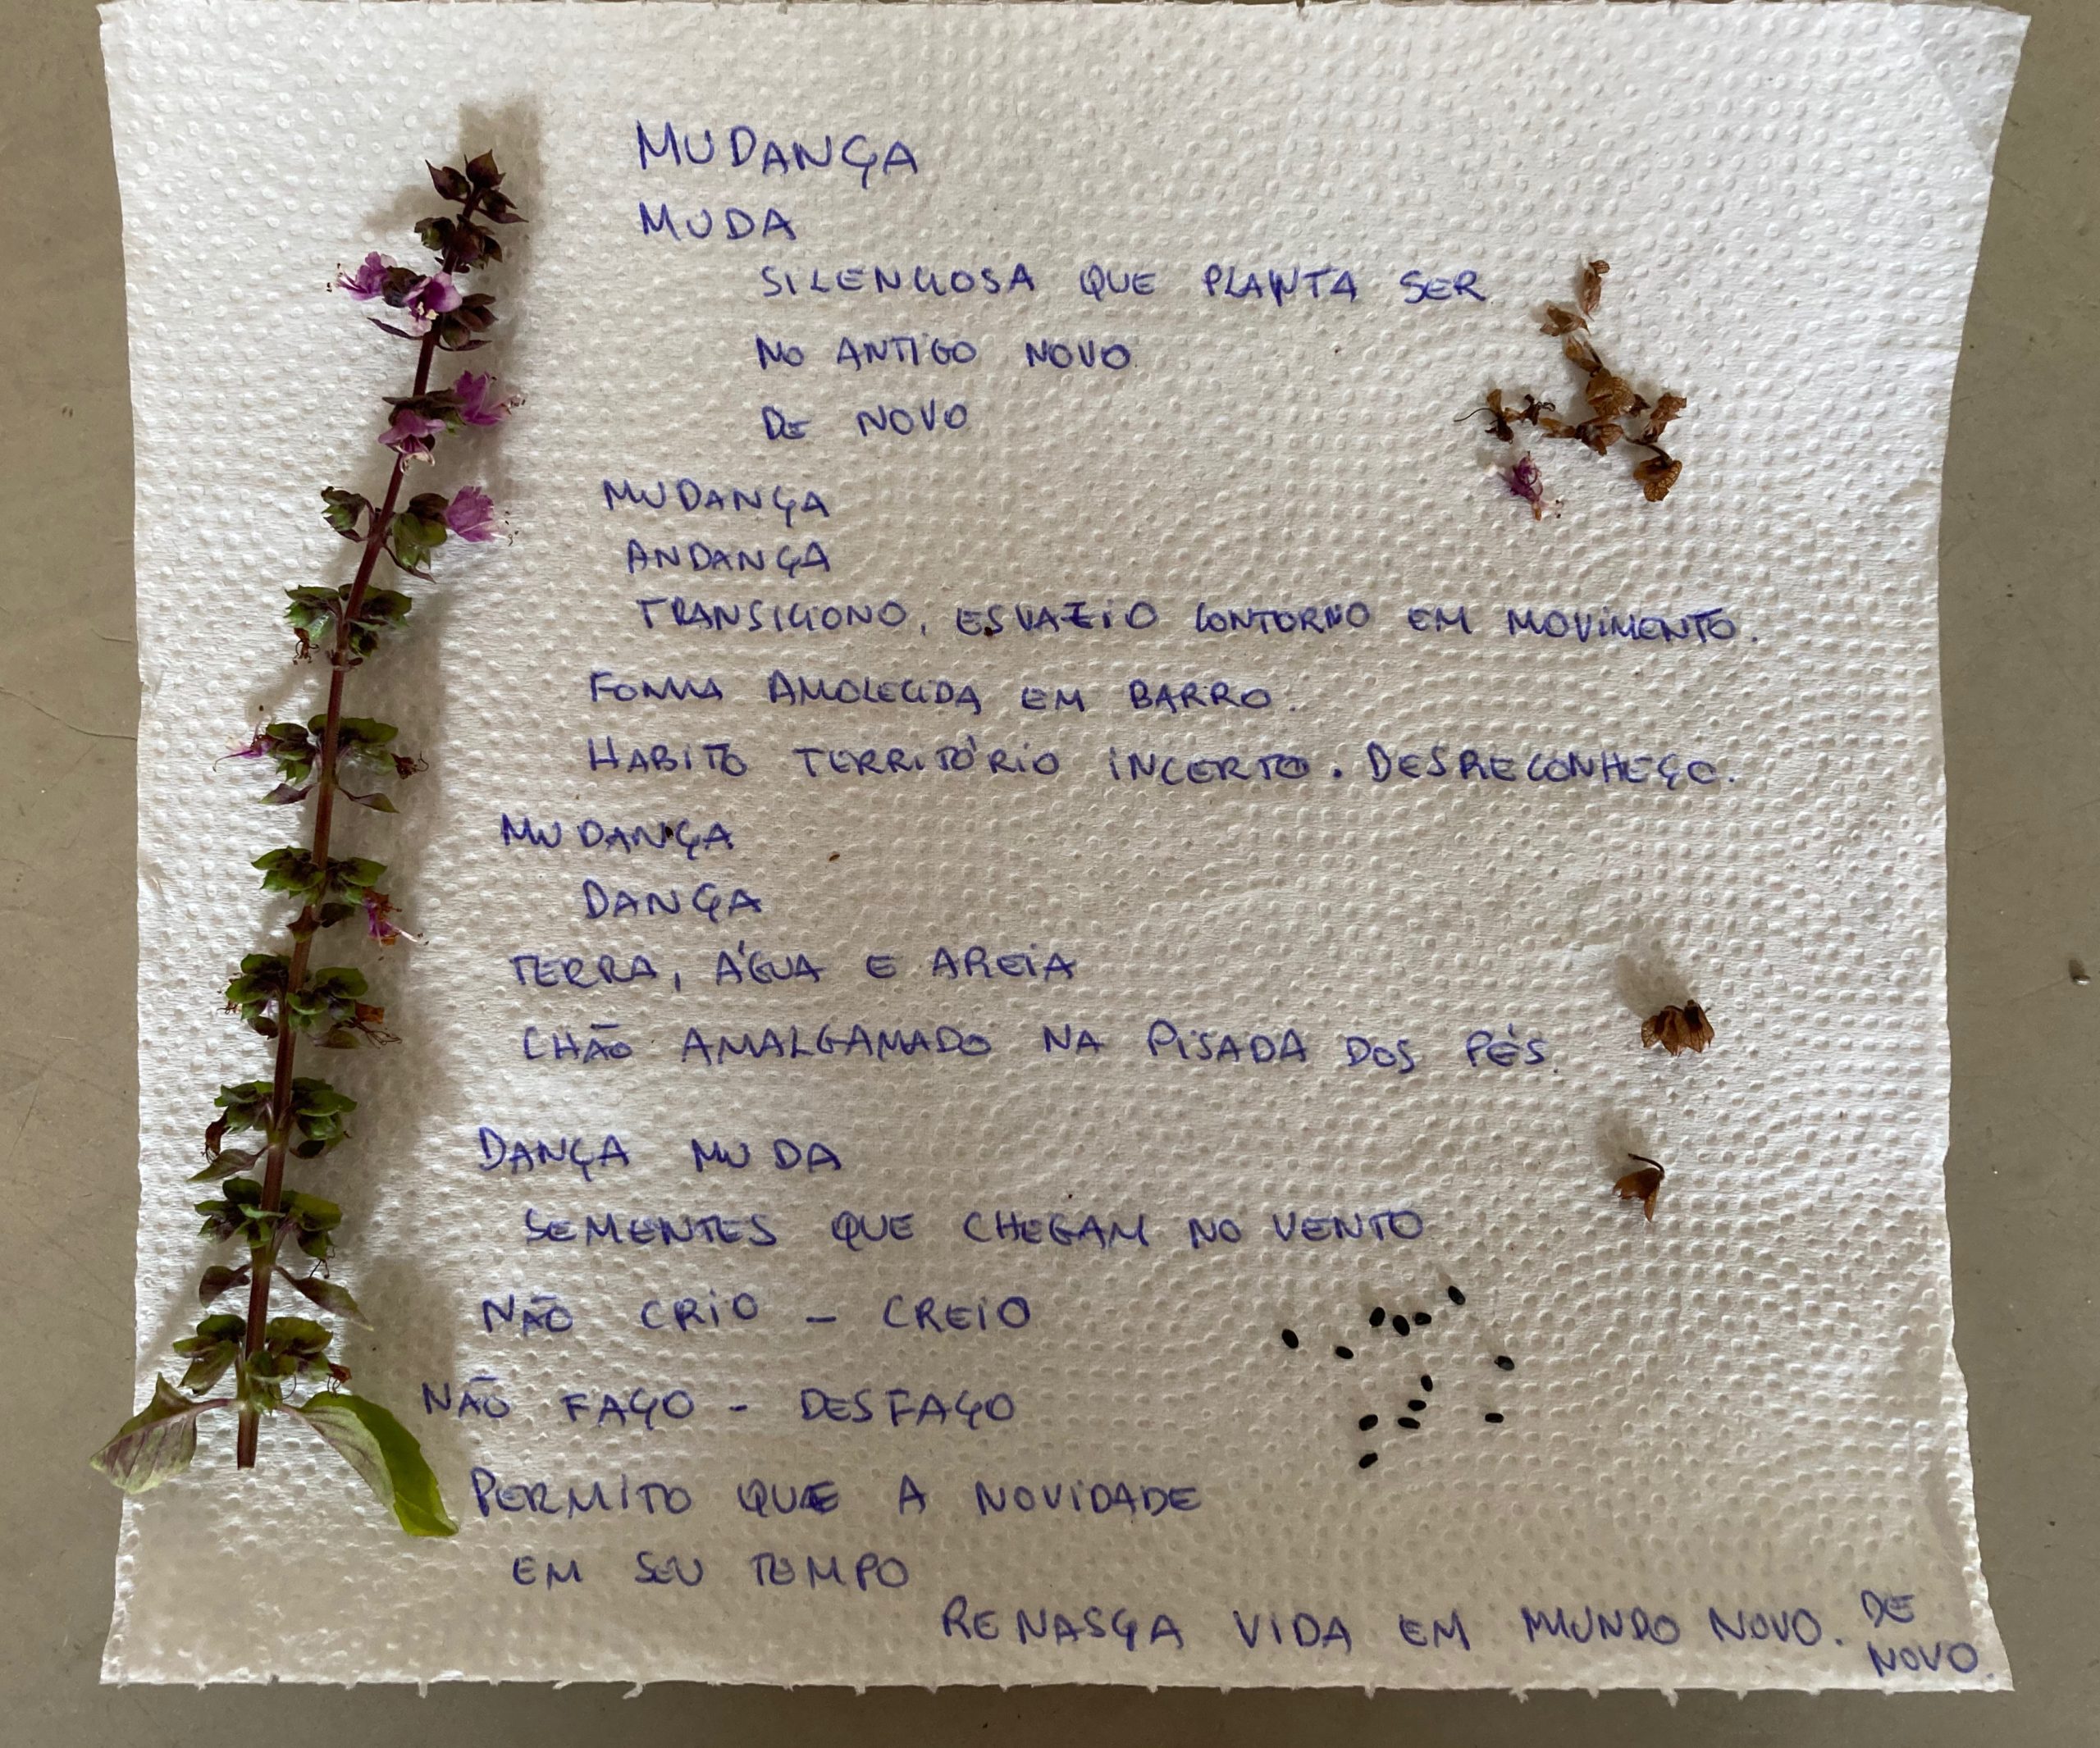 MUDANÇA
MUDA
SILENCIOSA QUE PLANTA SER
NO ANTIGO NOVO
DE NOVO
MUDANÇA
ANDANÇA
TRANSICIONO, ESVAZIO CONTORNO EM MOVIMENTO.
FORMA AMOLECIDA EM BARRO.
HABITO TERRITÓRIO INCERTO. DESRECONHEÇO.
MUDANÇA
DANÇA
TERRA, ÁGUA E AREIA
CHÃO AMALGAMADO NA PISADA DOS PÉS.
DANÇA MUDA
SEMENTES QUE CHEGAM NO VENTO
NÃO CRIO - CREIO
NÃO FAÇO - DESFAÇO
PERMITO QUE A NOVIDADE
EM SEU TEMPO
RENASÇA VIDA EM MUNDO NOVO. DE
NOVO.